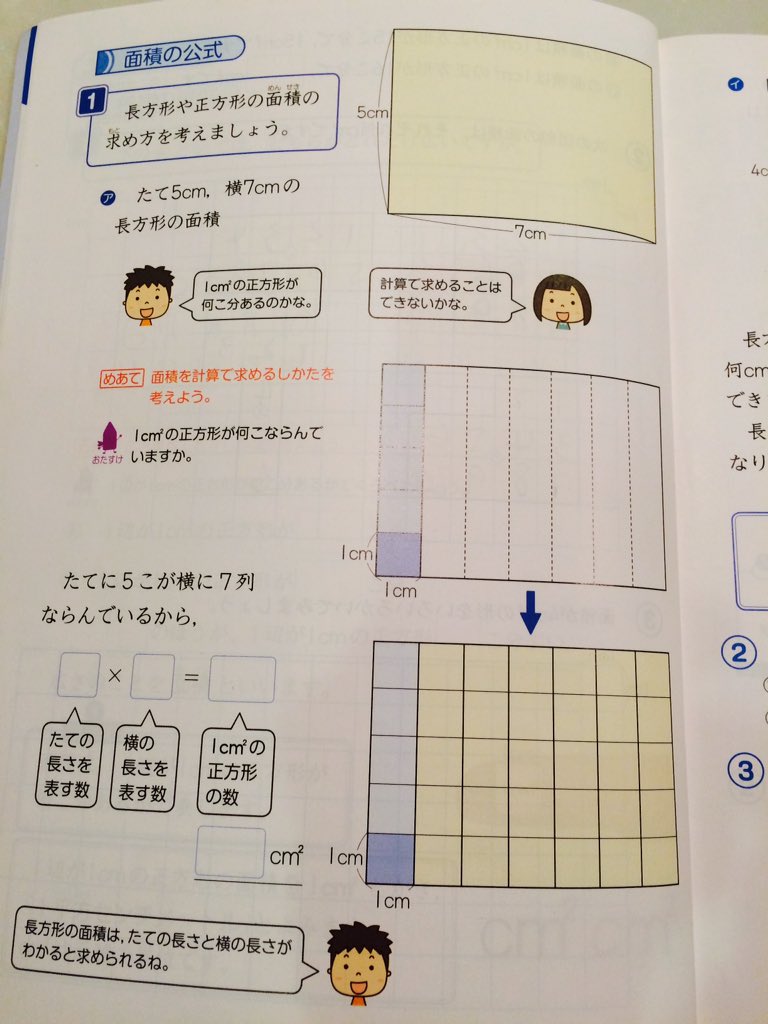 面積の公式
1
長方形や正方形の面積の
めん せき
求め方を考えましょう。
もと
5cm
7cm
ア たて5cm, 横7cmの
長方形の面積
1cm²の正方形が
何こ分あるのかな。
計算で求めることは
できないかな。
めあて 面積を計算で求めるしかたを
考えよう。
おたすけ
1cm²の正方形が何こならんで
いますか。
1cm
1cm
たてに5こが横に7列
ならんでいるから,
× =
たての
長さを
表す数
横の
長さを
表す数
1cm²の
正方形
の数
cm²
1cm
1cm
長方形の面積は, たての長さと横の長さが
わかると求められるね。
イ
4c
長方
何cm
でき
長
なり
2
3